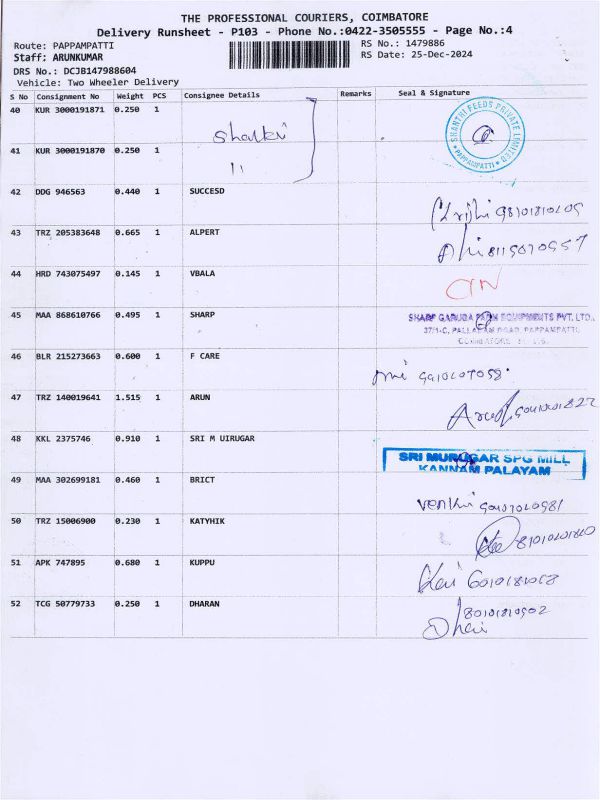 THE PROFESSIONAL COURIERS, COIMBATORE
Delivery Runsheet - P103 - Phone No.:0422-3505555 - Page No.:4
Route: PAPPAMPATTI
RS No.: 1479886
Staff: ARUNKUMAR
RS Date: 25-Dec-2024
DRS No.: DCJB147988604
Vehicle: Two Wheeler Delivery
S No Consignment No Weight PCS Consignee Details Remarks Seal & Signature
40 KUR 3000191871 0.250 1
SHANTHI FEEDS PRIVATE LIMITED
PAPPAMPATTI
41 KUR 3000191870 0.250 1
42 DDG 946563 0.440 1 SUCCESD
43 TRZ 205383648 0.665 1 ALPERT
44 HRD 743075497 0.145 1 VBALA
45 MAA 868610766 0.495 1 SHARP
SHARP GARUDA FARM EQUIPMENTS PVT. LTD.,
ROAD, PAPPAMPATTI,
46 BLR 215273663 0.600 1 F CARE
47 TRZ 140019641 1.515 1 ARUN
48 KKL 2375746 0.910 1 SRI M UIRUGAR
SRI MURUGAR SPG MILL
KANNAM PALAYAM
49 MAA 302699181 0.460 1 BRICT
50 TRZ 15006900 0.230 1 KATYHIK
51 APK 747895 0.680 1 KUPPU
52 TCG 50779733 0.250 1 DHARAN